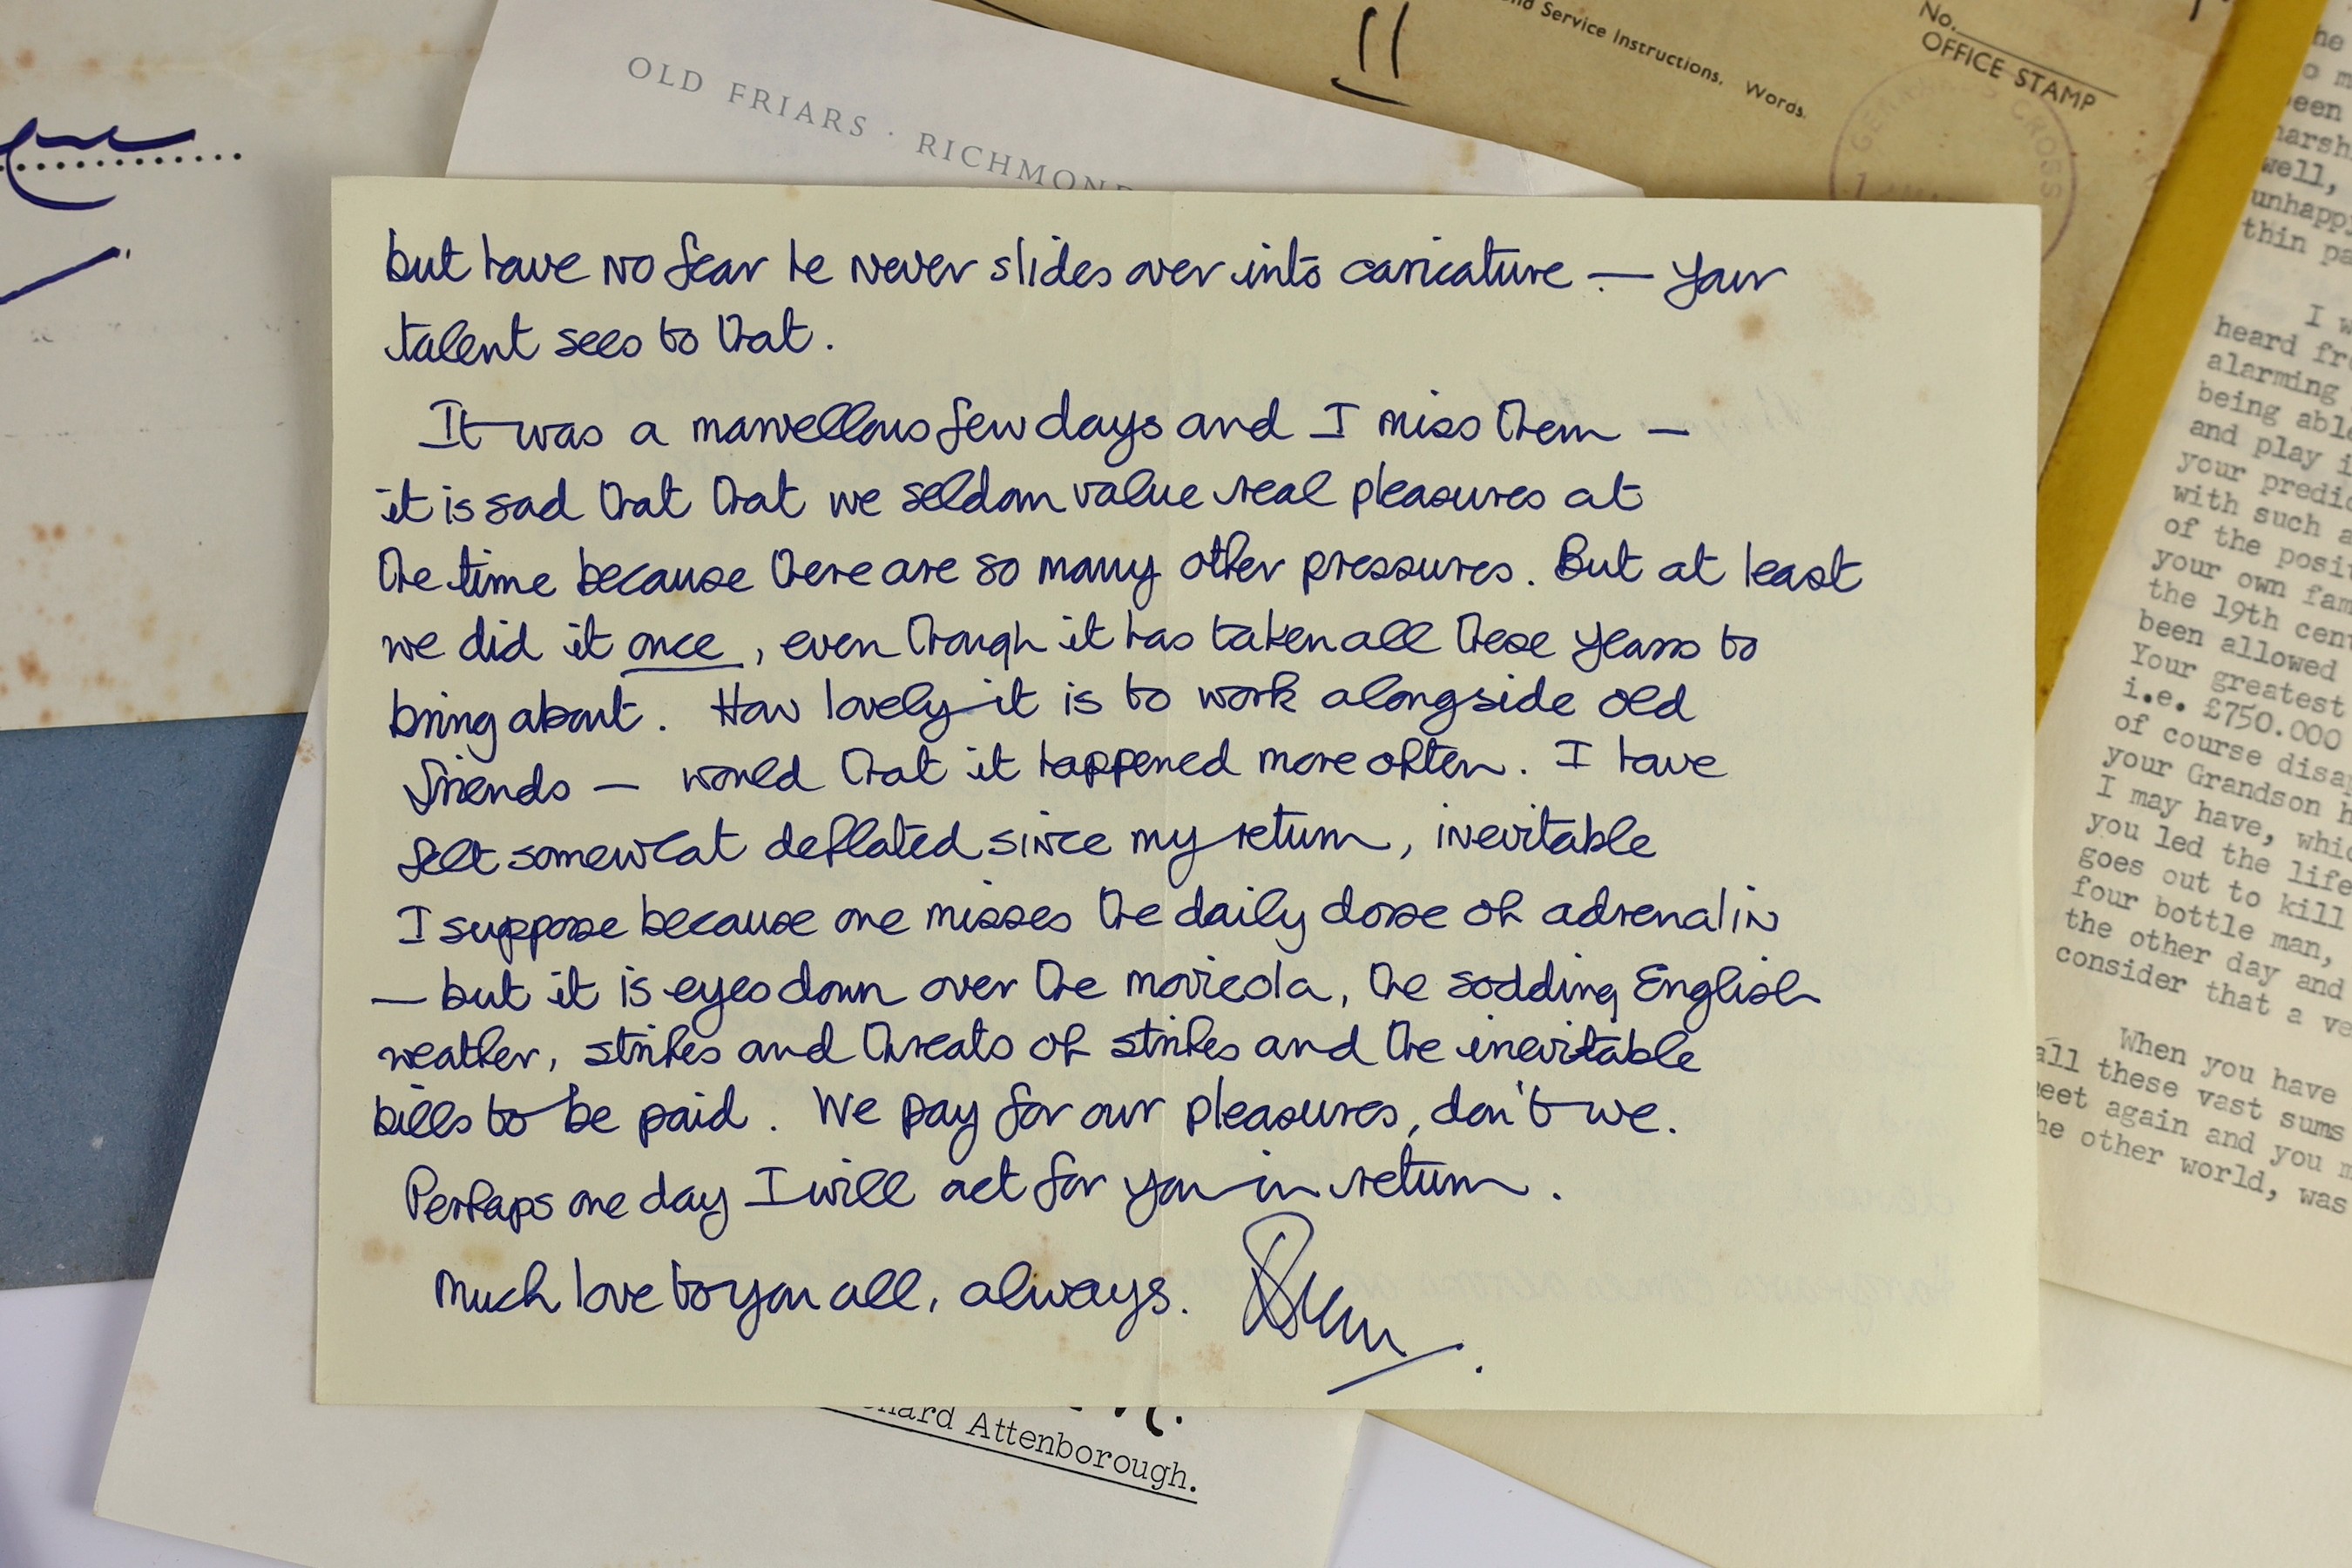 OLD FRIARS · RICHMOND
11
Service Instructions. Words.
No.
OFFICE STAMP
CROSS
but have no fear he never slides over into caricature — your
talent sees to that.
It was a marvellous few days and I miss them —
it is sad that that we seldom value real pleasures at
the time because there are so many other pressures. But at least
we did it once, even though it has taken all these years to
bring about. How lovely it is to work alongside old
friends — would that it happened more often. I have
felt somewhat deflated since my return, inevitable
I suppose because one misses the daily dose of adrenalin
— but it is eyes down over the movieola, the sodding English
weather, strikes and threats of strikes and the inevitable
bills to be paid. We pay for our pleasures, don't we.
Perhaps one day I will act for you in return.
Much love to you all, always.
Attenborough.
well,
thin
I
heard
alarming
being
and play
your
with such
of the
your own
the 19th
been allowed
Your greatest
i.e. £750.000
of course
your Grandson
I may have,
you led the life
goes out to kill
four bottle man,
the other day and
consider that a
When you have
all these vast sums
meet again and you
the other world, was